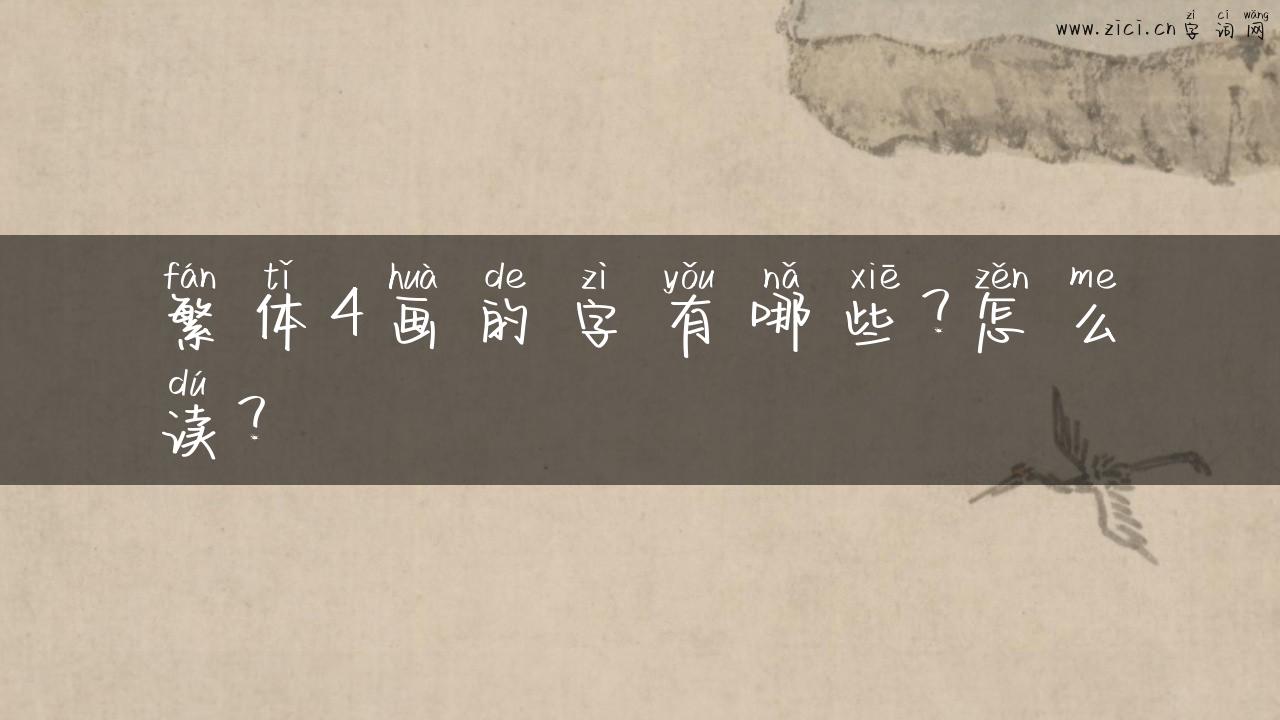 www.zici.cn 字词网
zì cí wǎng
fán tǐ huà de zì yǒu nǎ xiē zěn me
繁体4画的字有哪些?怎么
dú
读?